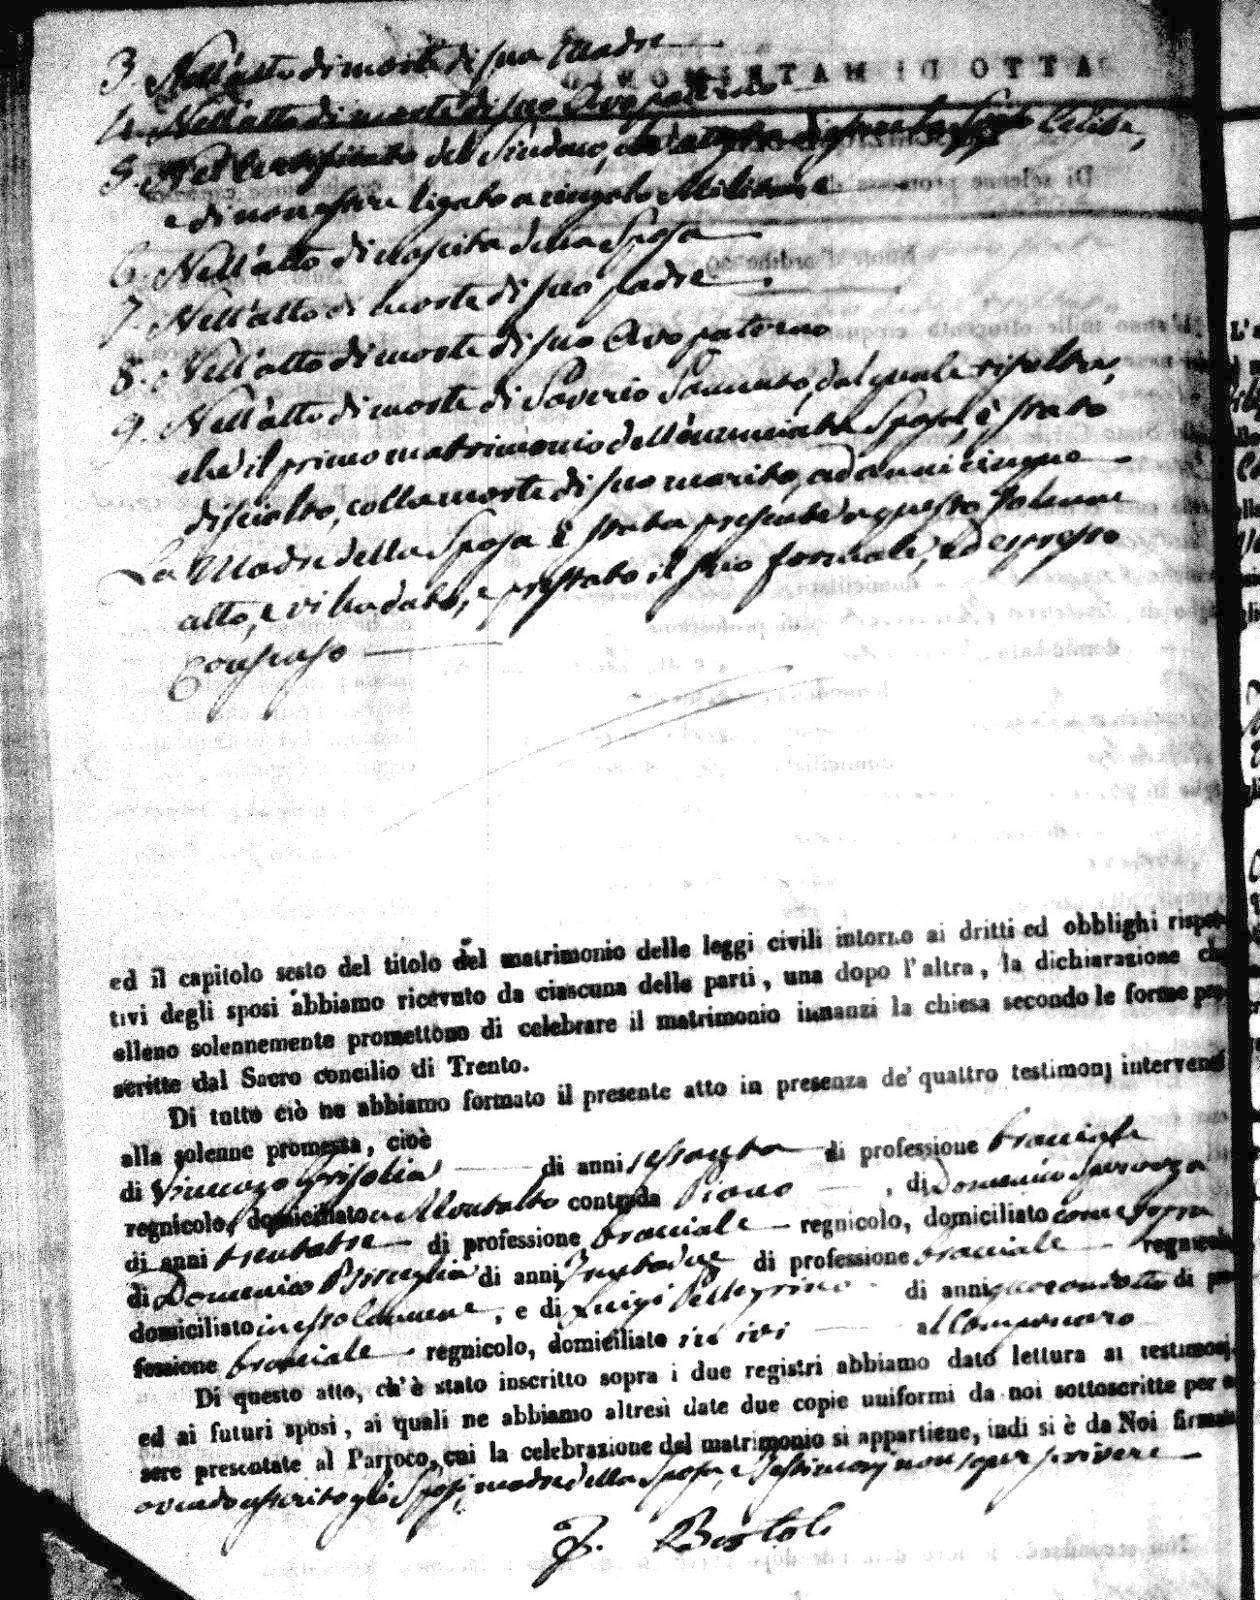 3. Nell'atto di morte di sua Madre
4. Nell'atto di morte di suo Avo paterno
5. Nel Certificato del Sindaco, Celibe,
e di non essere ligato a cingolo Militare
6. Nell'atto di nascita della Sposa
7. Nell'atto di morte di suo padre
8. Nell'atto di morte di suo Avo paterno
9. Nell'atto di morte di Saverio dal quale risulta,
che il primo matrimonio dell'enunciata Sposa, è stato
disciolto, colla morte di suo marito, ad anni cinque
La Madre della Sposa è stata presente a questo solenne
atto, e vi ha dato, e prestato il suo formale, ed espresso
Consenso
ed il capitolo sesto del titolo del matrimonio delle leggi civili intorno ai dritti ed obblighi rispet-
tivi degli sposi abbiamo ricevuto da ciascuna delle parti, una dopo l'altra, la dichiarazione che
elleno solennemente promettono di celebrare il matrimonio innanzi la chiesa secondo le forme pre-
scritte dal Sacro concilio di Trento.
Di tutto ciò ne abbiamo formato il presente atto in presenza de' quattro testimonj intervenuti
alla solenne promessa, cioè
di Vincenzo Grisolia di anni sessanta di professione bracciale
regnicolo, domiciliato in Montalto contrada Piano, di Domenico
di anni trentatre di professione bracciale regnicolo, domiciliato come sopra
di Domenico Bisceglia di anni di professione bracciale regnicolo
domiciliato in esso Comune, e di Luigi Pellegrino di anni quarantotto di pro
fessione bracciale regnicolo, domiciliato ivi
Di questo atto, ch'è stato inscritto sopra i due registri abbiamo dato lettura ai testimonj,
ed ai futuri sposi, ai quali ne abbiamo altresì date due copie uniformi da noi sottoscritte per es
sere presentate al Parroco, cui la celebrazione del matrimonio si appartiene, indi si è da Noi firmato
avendo asserito gli Sposi, madre della Sposa, e Testimonj non saper scrivere